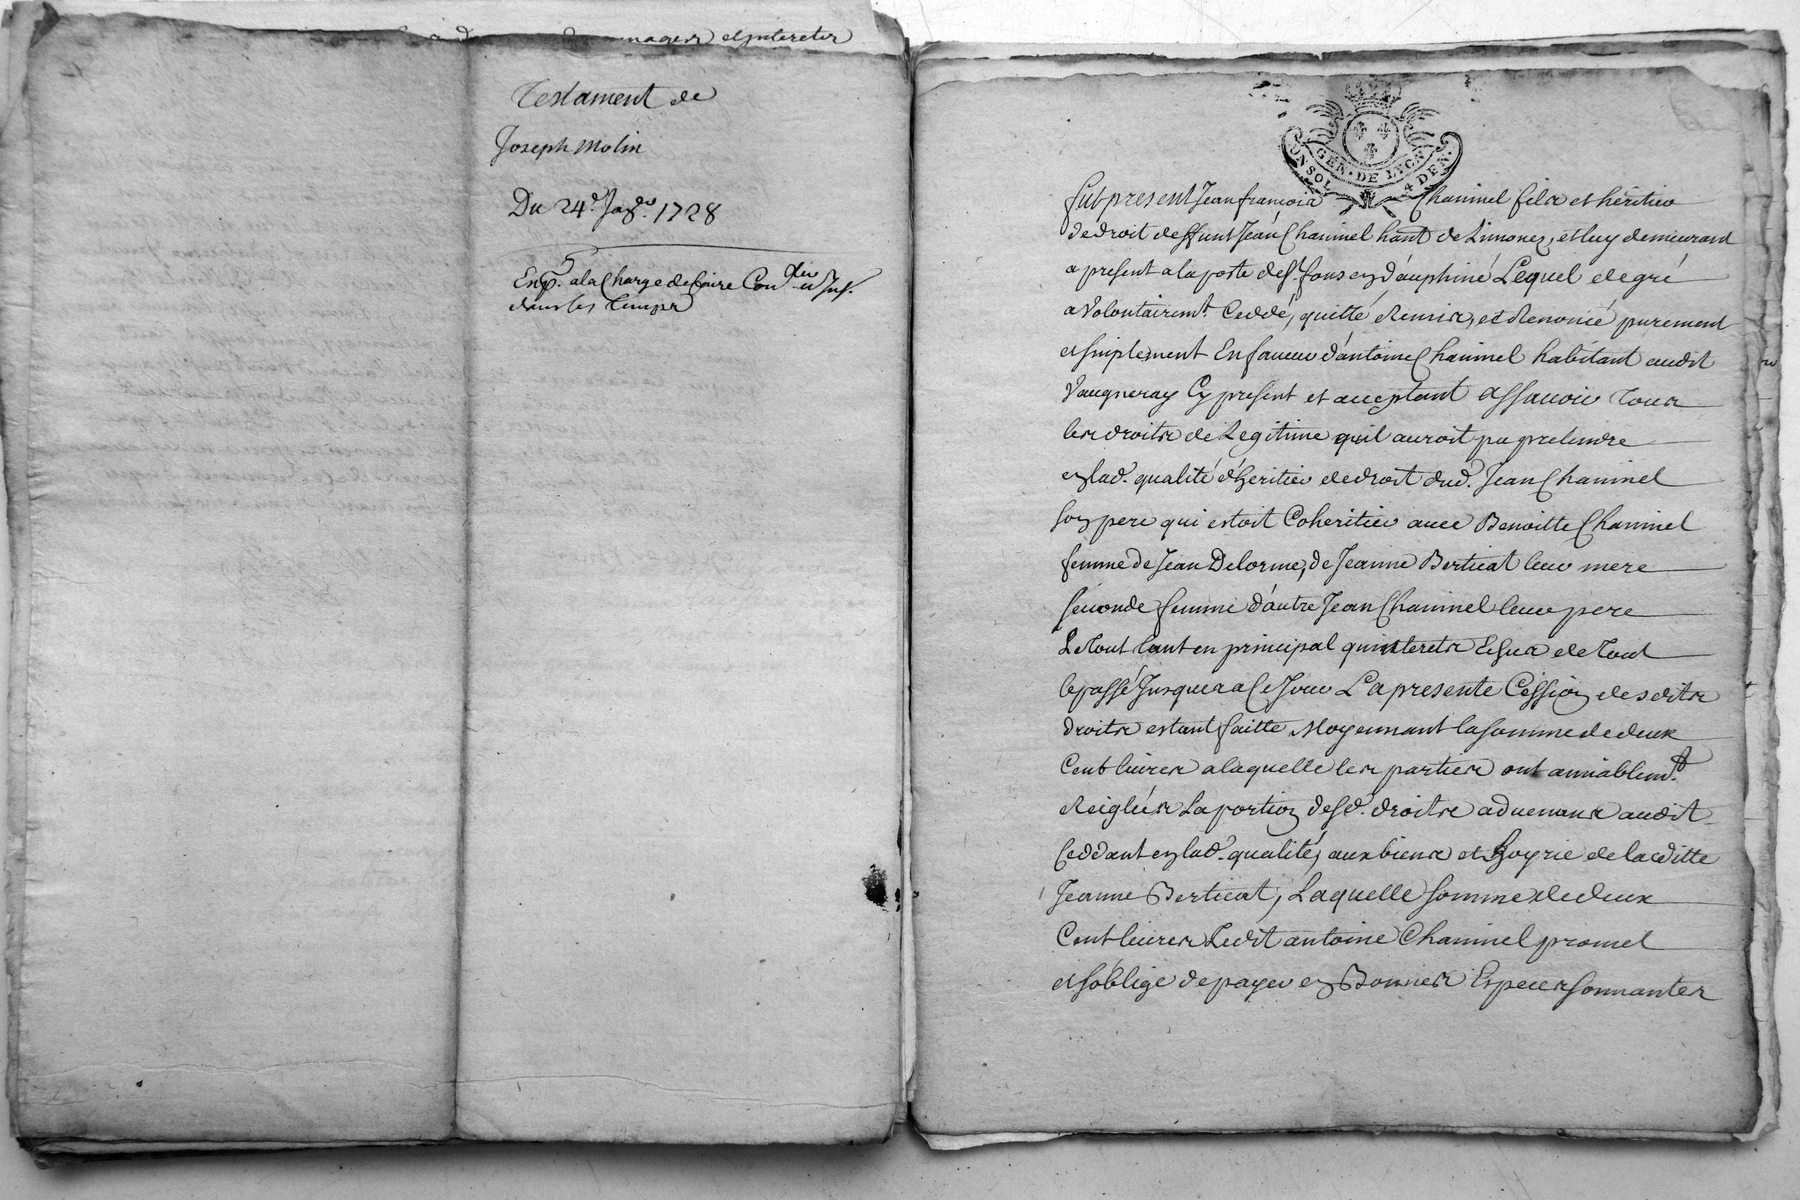 et jnteretz
Testament de
Joseph Molin
Du 24e. Jas. 1728
a la Charge de faire
dans les Temps
GEN · DE LYON
4 DEN.
fut present Jean francois Chaninel fils et héritier
de droit deffunt Jean Chaninel hant de Limonez, et luy demeurant
a present a la poste de St. fons en dauphiné Lequel de gré
a Volontairemt. Ceddé, quitté Remis, et Renoncé purement
et simplement En faueur d'antoine Chaninel habitant audit
Vaugneray Cy present et acceptant assauoir Tous
les droits de Legitime quil auroit pu pretendre
en lad. qualité d'heritier de droit dud. Jean Chaninel
son pere qui estoit Coheritier auec Benoitte Chaninel
femme de Jean Delorme, de Jeanne Berticat leur mere
seconde femme d'autre Jean Chaninel leur pere
Le tout tant en principal quinterets Echus de tout
le passé Jusques a Ce Jour La presente Cession desdits
droits estant faitte Moyennant la somme de deux
Cent liures a laquelle les parties ont amiablemt.
Reiglées La portion desd. droits aduenans audit
Ceddant en lad. qualité, aux biens et hoyrie de laditte
Jeanne Berticat, Laquelle somme de deux
Cent liures Ledit antoine Chaninel promet
et s'oblige de payer en Bonnes Especes sonnantes